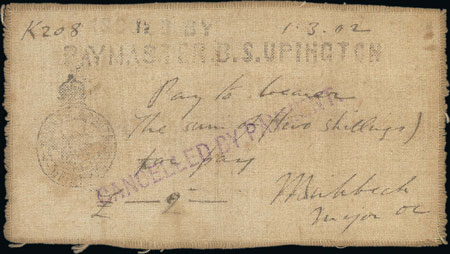 K208 ISSUED BY 1.3.02
PAYMASTER. B.S. UPINGTON
Pay to bearer
The sum of (two shillings)
for pay
CANCELLED BY PAYMENT
£ — 2 —
Major OC